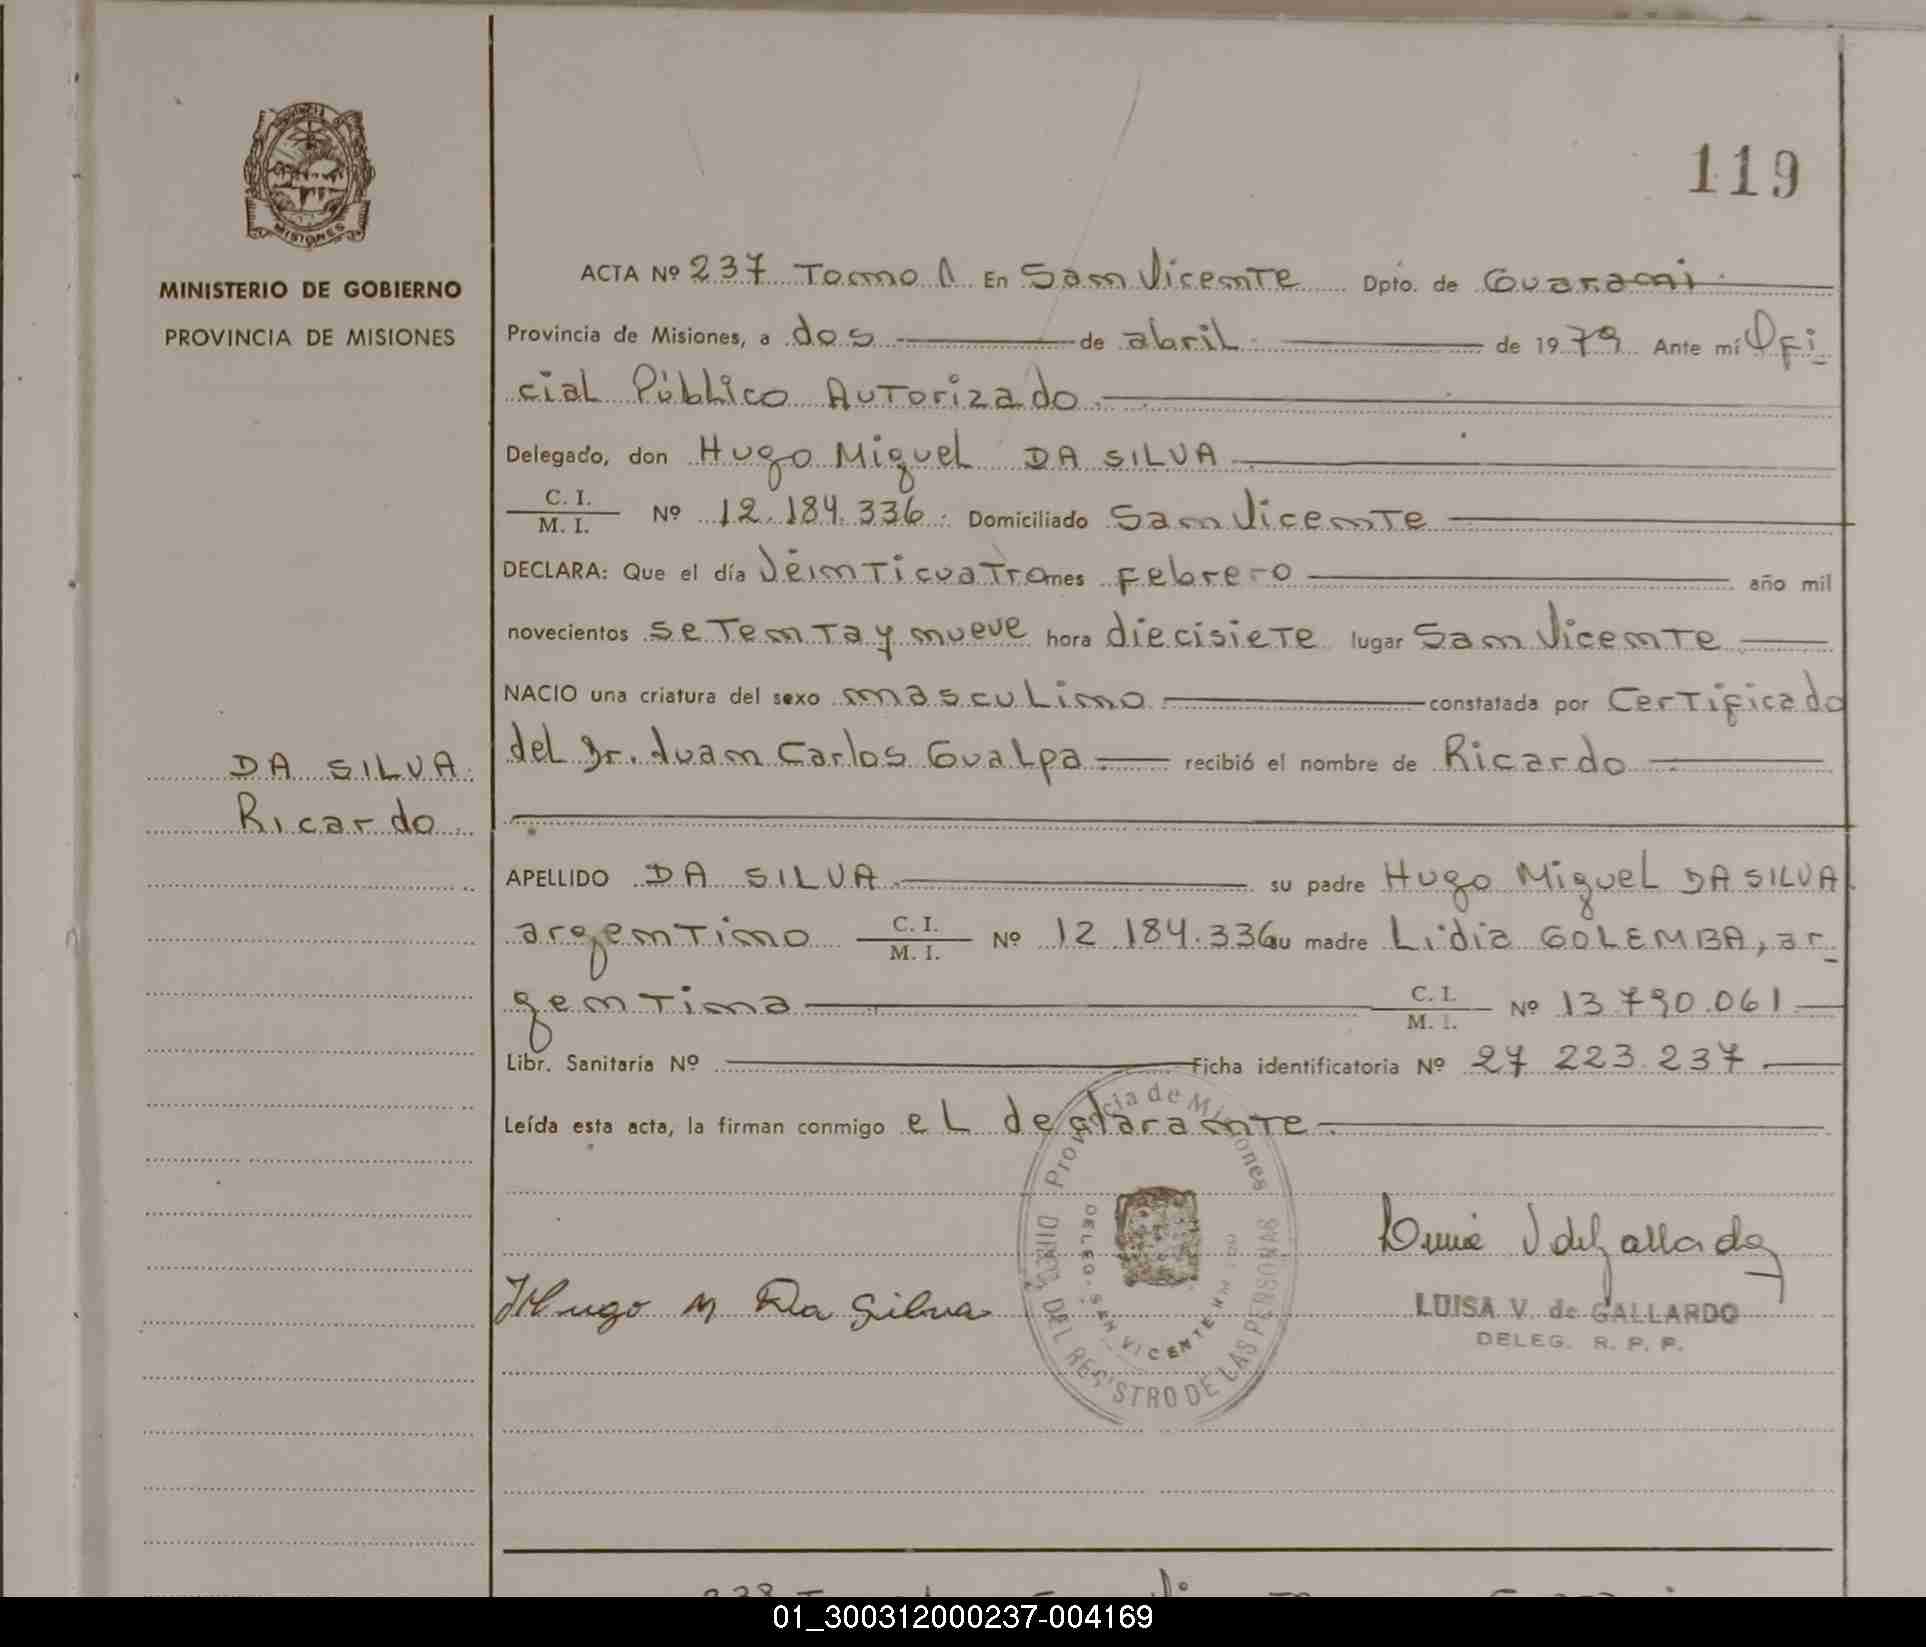 119
MISIONES
MINISTERIO DE GOBIERNO
PROVINCIA DE MISIONES
DA SILVA
Ricardo
ACTA Nº 237 Tomo 1 En San Vicente Dpto. de Guarani
Provincia de Misiones, a dos de abril de 1979 Ante mí Ofi
cial Público Autorizado
Delegado, don Hugo Miguel DA SILVA
C. I.
M. I. Nº 12.184.336. Domiciliado San Vicente
DECLARA: Que el día Veinticuatro mes Febrero año mil
novecientos setenta y nueve hora diecisiete lugar San Vicente
NACIO una criatura del sexo masculino constatada por Certificado
del Dr. Juan Carlos Gualpa recibió el nombre de Ricardo
APELLIDO DA SILVA su padre Hugo Miguel DA SILVA
argentino C. I.
M. I. Nº 12.184.336 su madre Lidia GOLEMBA, ar
gentina C. I.
M. I. Nº 13.790.061
Libr. Sanitaria Nº Ficha identificatoria Nº 27.223.237
Leída esta acta, la firman conmigo el declarante
Provincia de Misiones
DIREC. DEL REGISTRO DE LAS PERSONAS
DELEG. SAN VICENTE
Hugo M Da Silva
LUISA V. de GALLARDO
DELEG. R. P. P.
01_300312000237-004169